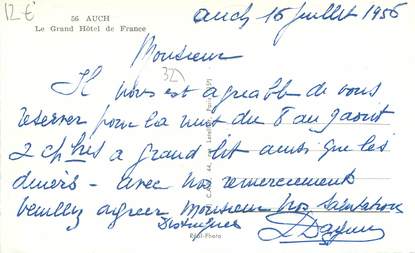 12 €
56 AUCH
Le Grand Hôtel de France
Auch 16 juillet 1956
Monsieur
(32)
Il nous est agréable de vous
reserver pour la nuit du 8 au 9 aout
2 chbres a grand lit ainsi que les
diners - avec nos remerciements
veuillez agreer Monsieur nos salutations
Distinguées
Réal-Photo